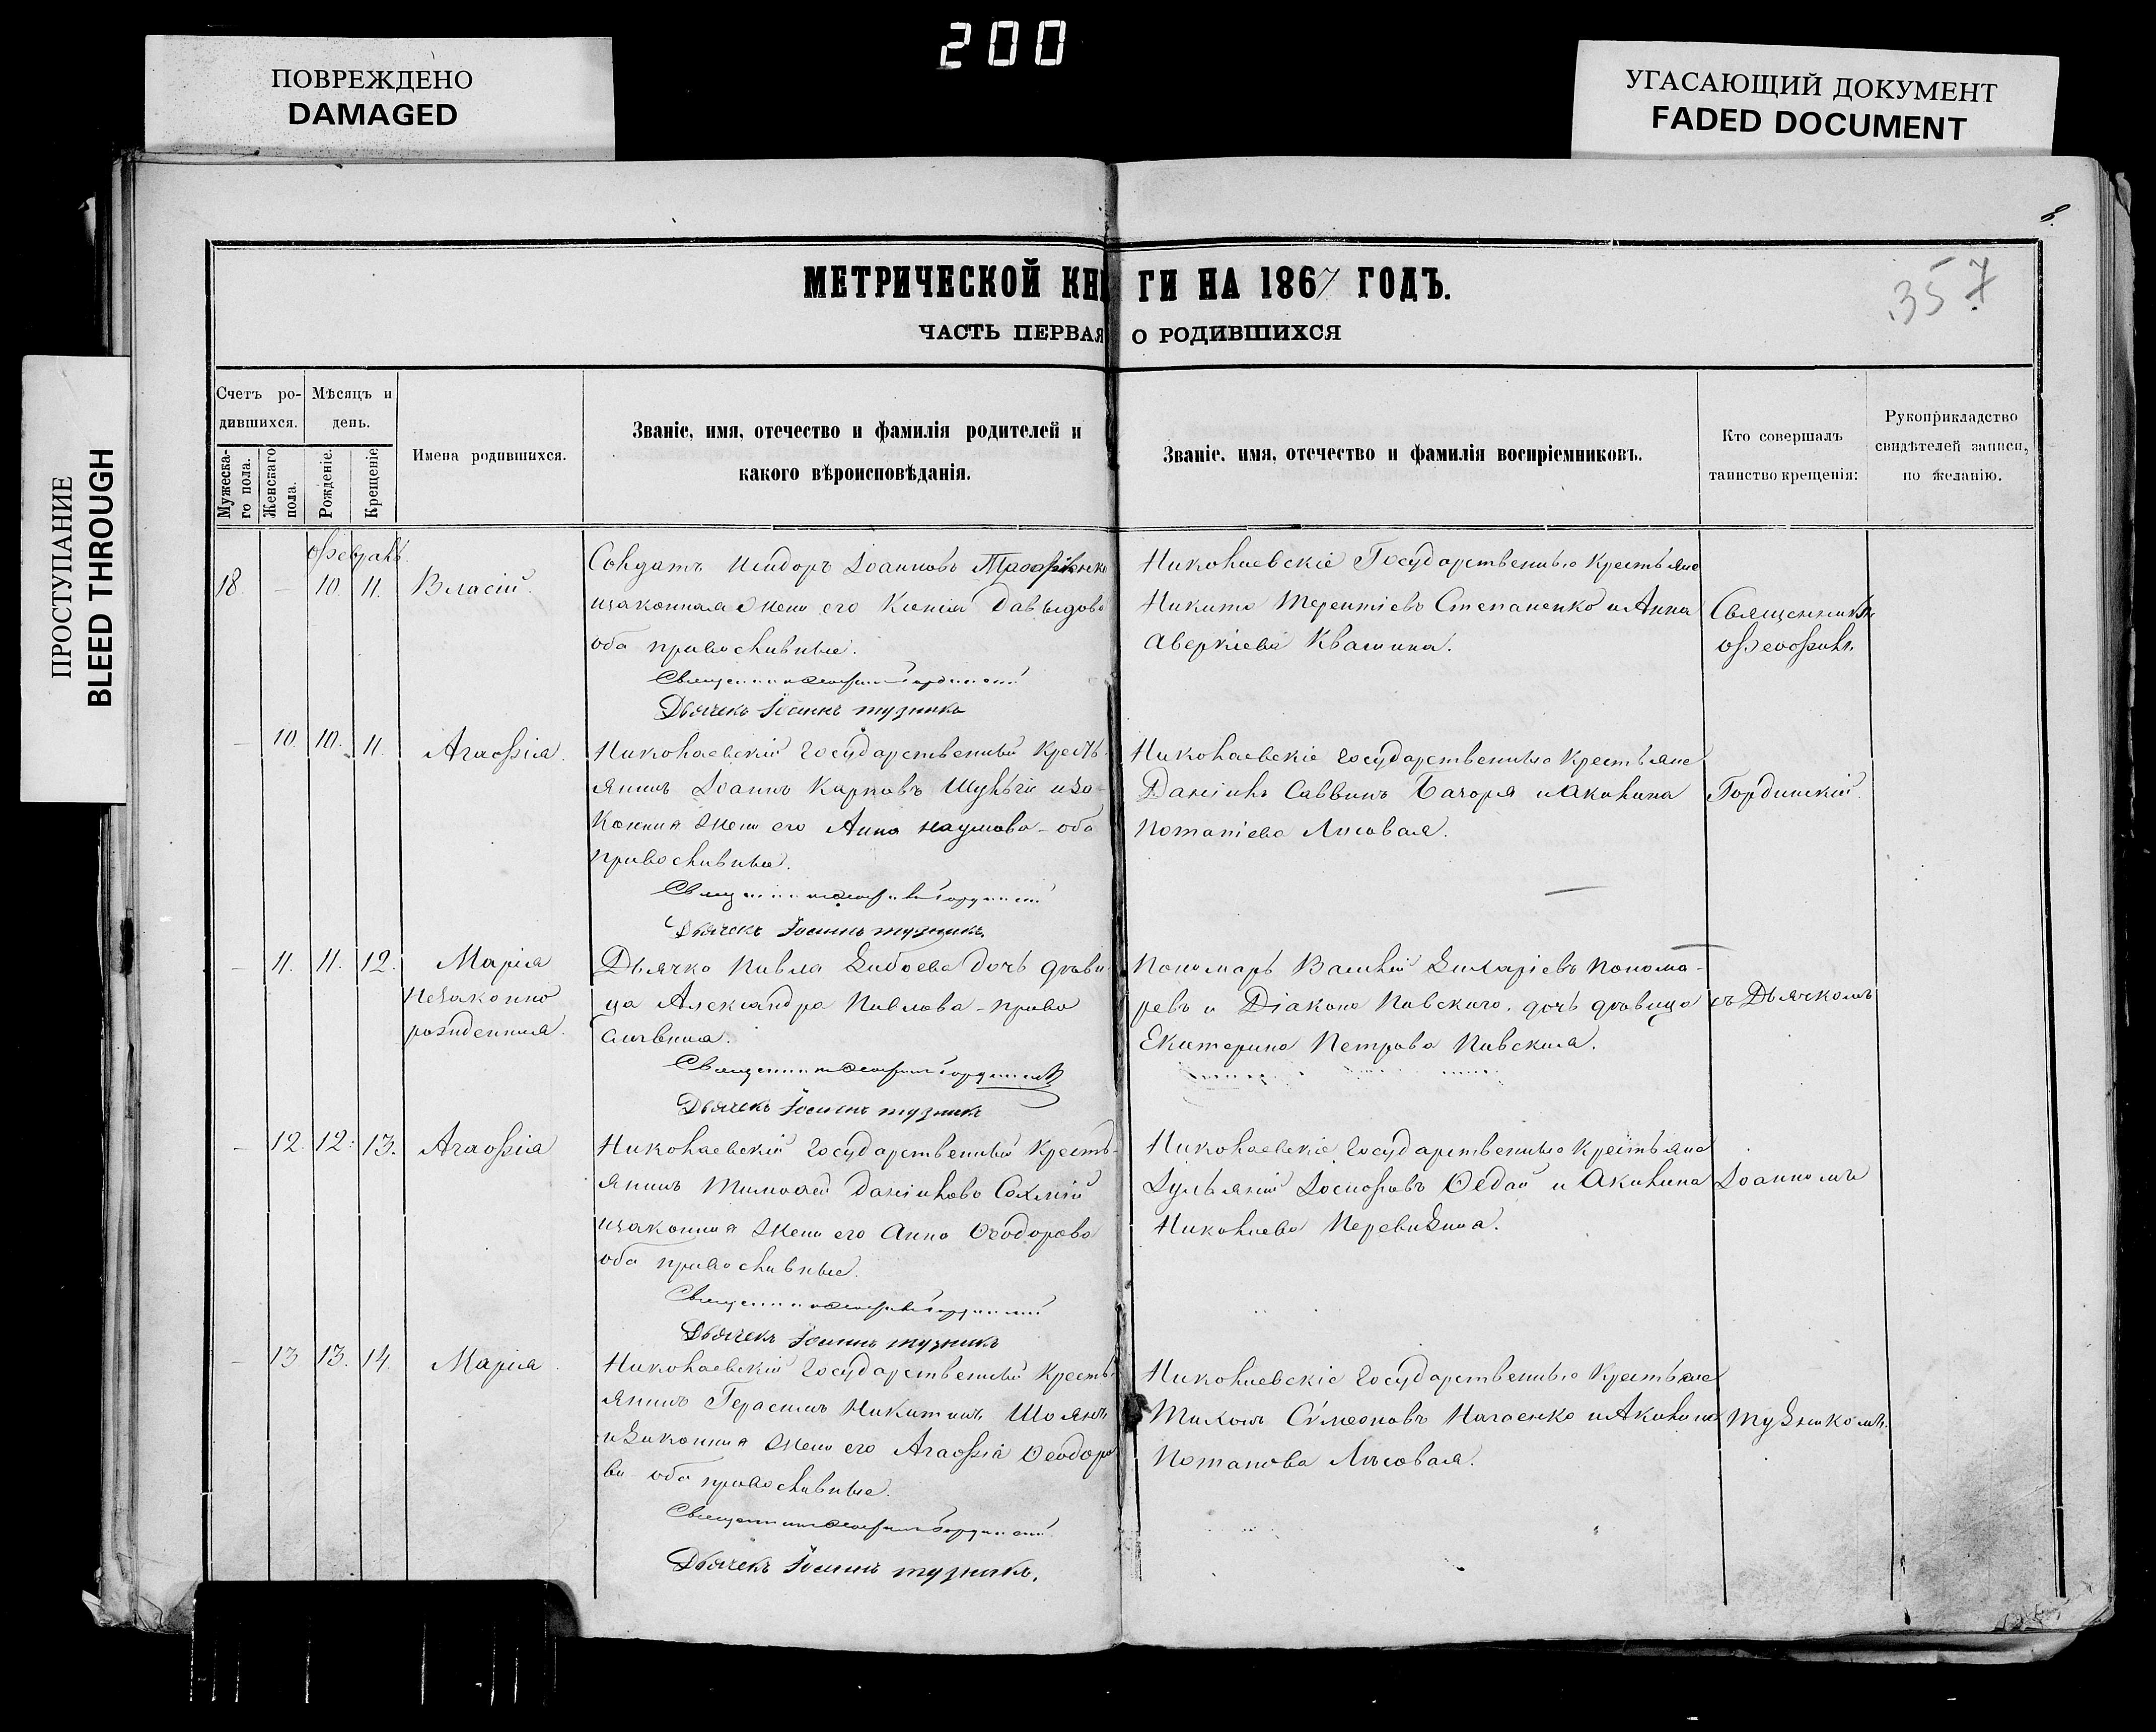 200
ПОВРЕЖДЕНО
DAMAGED
УГАСАЮЩИЙ ДОКУМЕНТ
FADED DOCUMENT
ПРОСТУПАНИЕ
BLEED THROUGH
357
МЕТРИЧЕСКОЙ КНИГИ НА 1867 ГОДЪ.
ЧАСТЬ ПЕРВАЯ О РОДИВШИХСЯ
Счетъ ро-
дившихся.
Мѣсяцъ и
день.
Мужеска-
го пола.
Женскаго
пола.
Рожденіе.
Крещеніе
Имена родившихся.
Званіе, имя, отечество и фамилія родителей и
какого вѣроисповѣданія.
Званіе, имя, отечество и фамилія воспріемниковъ.
Кто совершалъ
таинство крещенія:
Рукоприкладство
свидѣтелей записи,
по желанію.
Февраль.
18. — 10. 11. Власій.
Солдатъ Исидоръ Іоанновъ
изаконная жена его Ксенія Давыдова
оба православные.
Дьячекъ Іоаннъ тузникъ
Николаевскіе Государственные крестьяне
Никита Терентіевъ Степаненко и Анна
Аверкіева Квашина.
Священникъ
Феофилъ
— 10. 10. 11. Агафія.
Николаевскій государственный кресть-
янинъ Іоаннъ Карповъ изо-
конная жена его Анна Наумова - оба
православные.
Дьячекъ Іоаннъ тузникъ.
Николаевскіе государственные крестьяне
Даніилъ Саввинъ Бачоря и Акилина
Потапіева Лисовая.
Гординскій
— 11. 11. 12. Марія
незаконно
рожденная.
Дьячка Павла дочь дѣви-
ца Александра Павлова - право
славная.
Дьячекъ Іоаннъ тузникъ
Пономарь Василій Понома-
ревъ и Діакона Павскаго, дочь дѣвица
Екатерина Петрова Павская.
съ Дьячкомъ
— 12. 12. 13. Агафія
Николаевскій государственный кресть-
янинъ Тимофей Даніиловъ
изаконная жена его Анна Ѳеодорова
оба православные.
Дьячекъ Іоаннъ тузникъ
Николаевскіе государственные крестьяне
Іосифовъ и Акилина
Николаева
Іоанномъ
— 13 13. 14. Марія
Николаевскій государственный кресть-
янинъ Герасимъ Никитинъ
изаконная жена его Агафія Ѳеодоро
ва оба православные.
Дьячекъ Іоаннъ тузникъ.
Николаевскіе государственные крестьяне
Тихонъ Сѵмеоновъ Нагаенко и Акилина
Потапова Лисовая.
Тузникомъ.